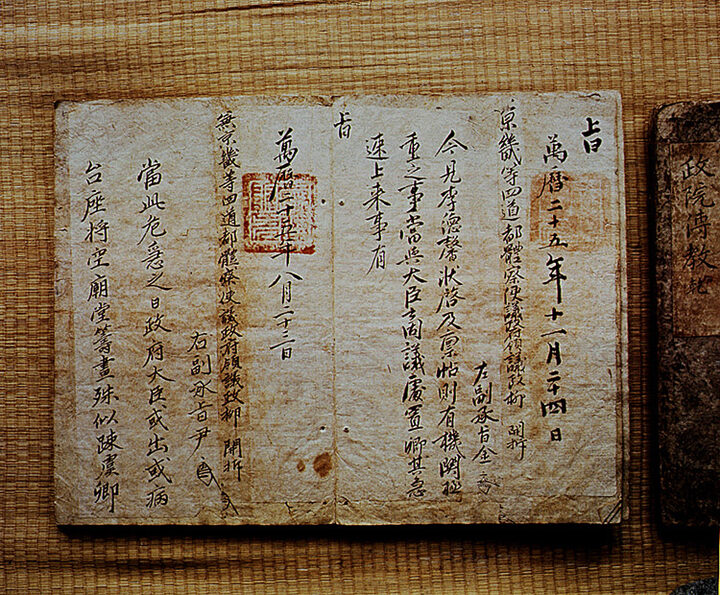 旨
萬曆二十五年十一月二十四日
京畿等四道都體察使議政府領議政柳 開拆
左副承旨金
今見李德馨狀啓及稟帖則有機關極
重之事當與大臣商議處置卿其急
速上来事有
旨
萬曆二十五年八月二十三日
兼京畿等四道都體察使議政府領議政柳 開拆
右副承旨尹
當此危急之日政府大臣或出或病
台座將空廟堂籌畫殊似踈虞卿
政院傳教